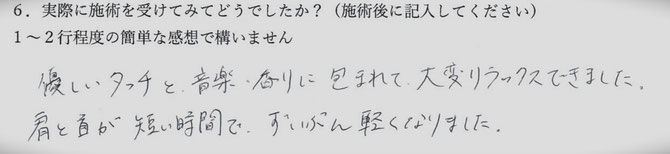 6．実際に施術を受けてみてどうでしたか？（施術後に記入してください）
1～2行程度の簡単な感想で構いません
優しいタッチと、音楽・香りに包まれて、大変リラックスできました。
肩と首が短い時間で、ずいぶん軽くなりました。